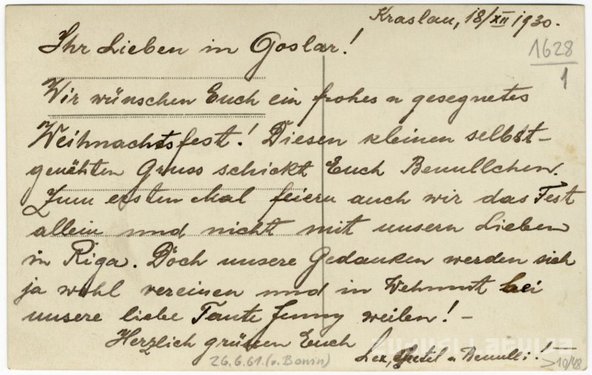 Kraslau, 18/XII 1930.
1628
1
Ihr Lieben in Goslar!
Wir wünschen Euch ein frohes u gesegnetes
Weihnachtsfest! Diesen kleinen selbst-
genähten Gruss schickt Euch Benullchen.
Zum ersten Mal feiern auch wir das Fest
allein und nicht mit unsern Lieben
in Riga. Doch unsere Gedanken werden sich
ja wohl vereinen und in Wehmut bei
unsere liebe Tante Jenny weilen! –
Herzlich grüssen Euch
Lex, Gretel u Benulli!
26.6.61. (v. Bonin)